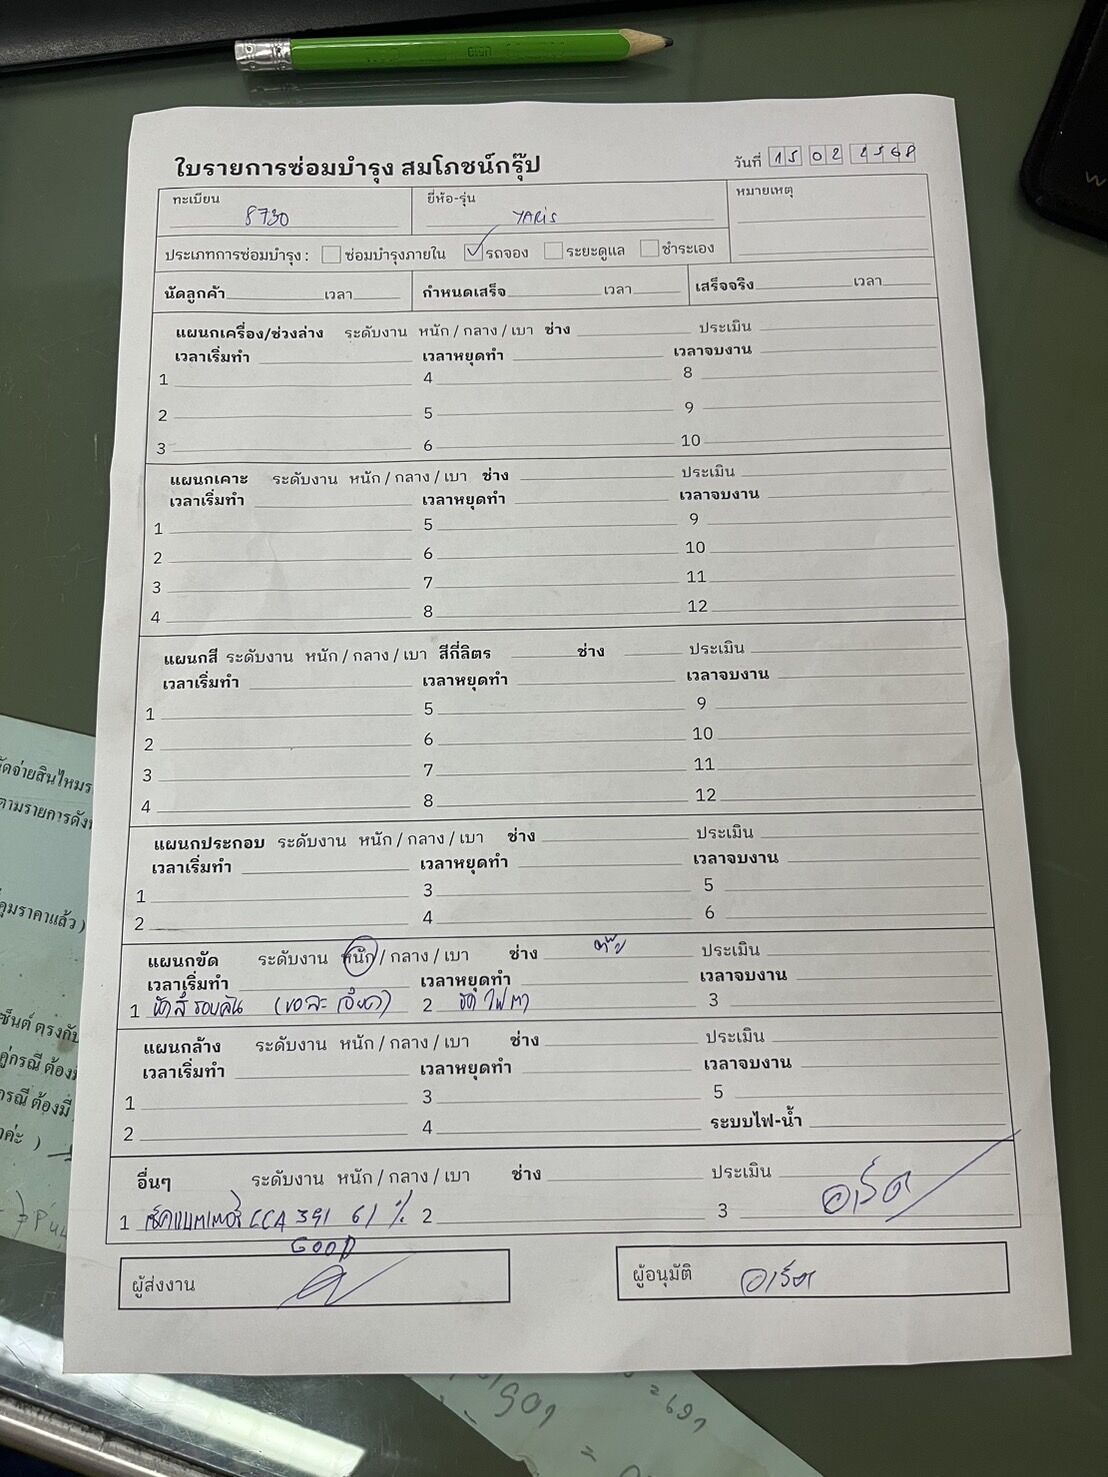 ใบรายการซ่อมบำรุง สมโภชน์กรุ๊ป
วันที่ 15 02 2568
ทะเบียน 8730
ยี่ห้อ-รุ่น YARiS
หมายเหตุ
ประเภทการซ่อมบำรุง : ซ่อมบำรุงภายใน รถจอง ระยะดูแล ชำระเอง
นัดลูกค้า เวลา กำหนดเสร็จ เวลา เสร็จจริง เวลา
แผนกเครื่อง/ช่วงล่าง ระดับงาน หนัก / กลาง / เบา ช่าง ประเมิน
เวลาเริ่มทำ เวลาหยุดทำ เวลาจบงาน
1 4 8
2 5 9
3 6 10
แผนกเคาะ ระดับงาน หนัก / กลาง / เบา ช่าง ประเมิน
เวลาเริ่มทำ เวลาหยุดทำ เวลาจบงาน
1 5 9
2 6 10
3 7 11
4 8 12
แผนกสี ระดับงาน หนัก / กลาง / เบา สีกี่ลิตร ช่าง ประเมิน
เวลาเริ่มทำ เวลาหยุดทำ เวลาจบงาน
1 5 9
2 6 10
3 7 11
4 8 12
แผนกประกอบ ระดับงาน หนัก / กลาง / เบา ช่าง ประเมิน
เวลาเริ่มทำ เวลาหยุดทำ เวลาจบงาน
1 3 5
2 4 6
แผนกขัด ระดับงาน หนัก / กลาง / เบา ช่าง ประเมิน
เวลาเริ่มทำ เวลาหยุดทำ เวลาจบงาน
1 ขัดสีรอบคัน (ขอละเอียด) 2 ขัดไฟตา 3
แผนกล้าง ระดับงาน หนัก / กลาง / เบา ช่าง ประเมิน
เวลาเริ่มทำ เวลาหยุดทำ เวลาจบงาน
1 3 5
2 4 ระบบไฟ-น้ำ
อื่นๆ ระดับงาน หนัก / กลาง / เบา ช่าง ประเมิน
1 เช็คแบตเตอรี่ CCA 391 61 % 2 3
GOOD
ผู้ส่งงาน
ผู้อนุมัติ